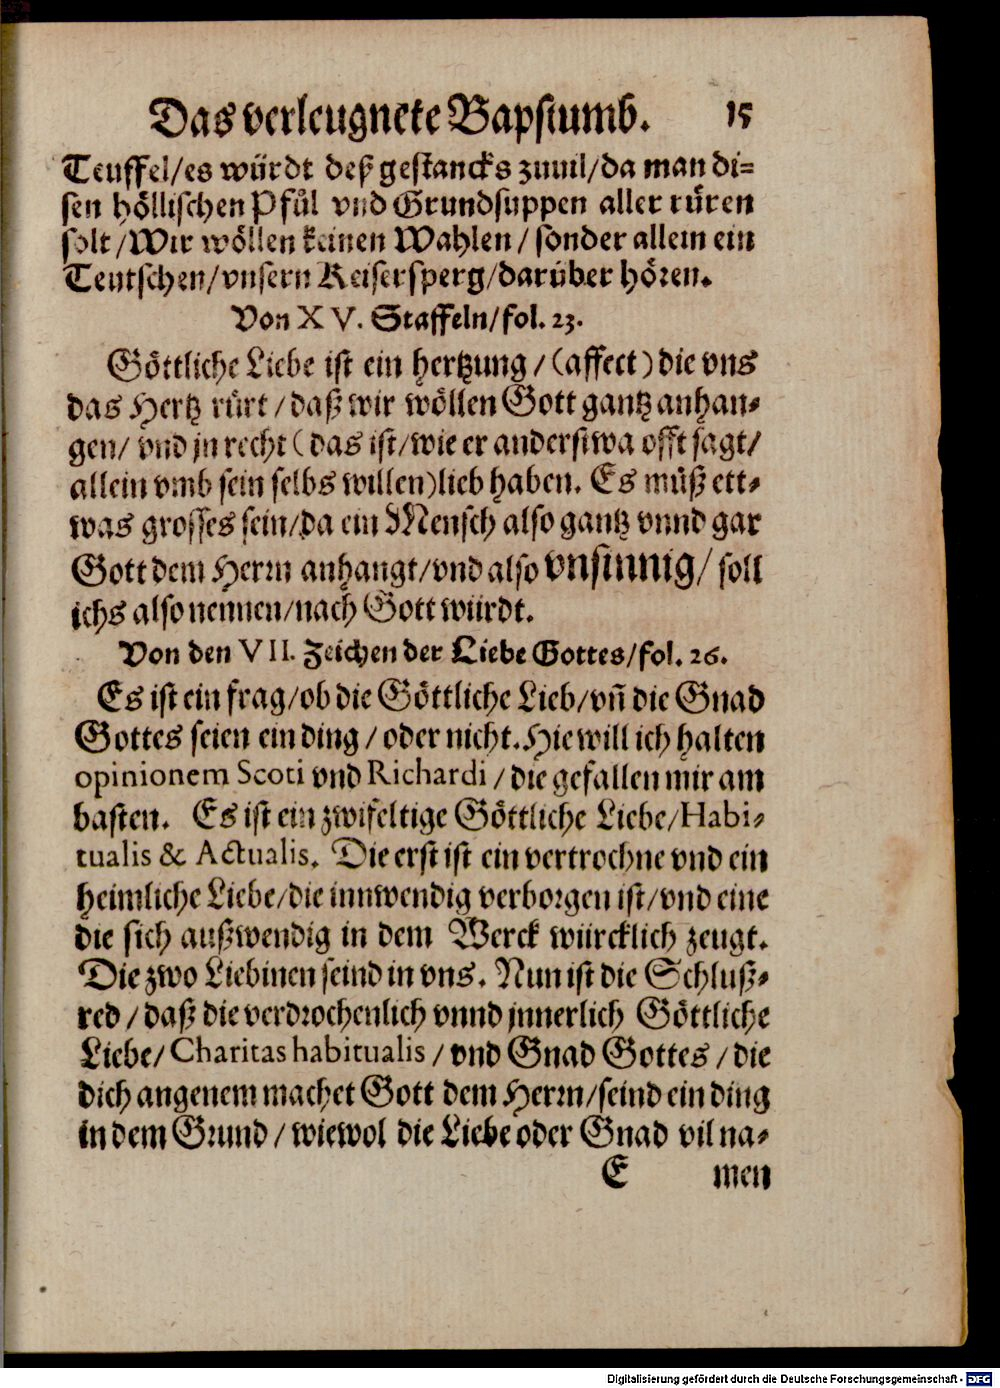 Das verleugnete Bapstumb. 15
Teuffel/es würdt deß gestancks zuuil/da man di=
sen höllischen Pfůl vnd Grundsuppen aller růren
solt/Wir wöllen keinen Wahlen/sonder allein ein
Teutschen/vnsern Keisersperg/darüber hören.
Von XV. Staffeln/fol. 23.
Göttliche Liebe ist ein hertzung/(affect) die vns
das Hertz rürt/daß wir wöllen Gott gantz anhan-
gen/ vnd jn recht (das ist/wie er anderstwa offt sagt/
allein vmb sein selbs willen) lieb haben. Es můß ett-
was grosses sein/da ein Mensch also gantz vnnd gar
Gott dem Herrn anhangt/vnd also vnsinnig/ soll
ichs also nennen/nach Gott würdt.
Von den VII. Zeichen der Liebe Gottes/fol. 26.
Es ist ein frag/ob die Göttliche Lieb/vñ die Gnad
Gottes seien ein ding/oder nicht. Hie will ich halten
opinionem Scoti vnd Richardi/die gefallen mir am
basten. Es ist ein zwifeltige Göttliche Liebe/Habi-
tualis & Actualis. Die erst ist ein vertrochne vnd ein
heimliche Liebe/die innwendig verborgen ist/vnd eine
die sich außwendig in dem Werck würcklich zeugt.
Die zwo Liebinen seind in vns. Nun ist die Schluß-
red/daß die verdrochenlich vnnd jnnerlich Göttliche
Liebe/Charitas habitualis/vnd Gnad Gottes/die
dich angenem machet Gott dem Herrn/seind ein ding
in dem Grund/wiewol die Liebe oder Gnad vil na-
E men
Digitalisierung gefördert durch die Deutsche Forschungsgemeinschaft - DFG